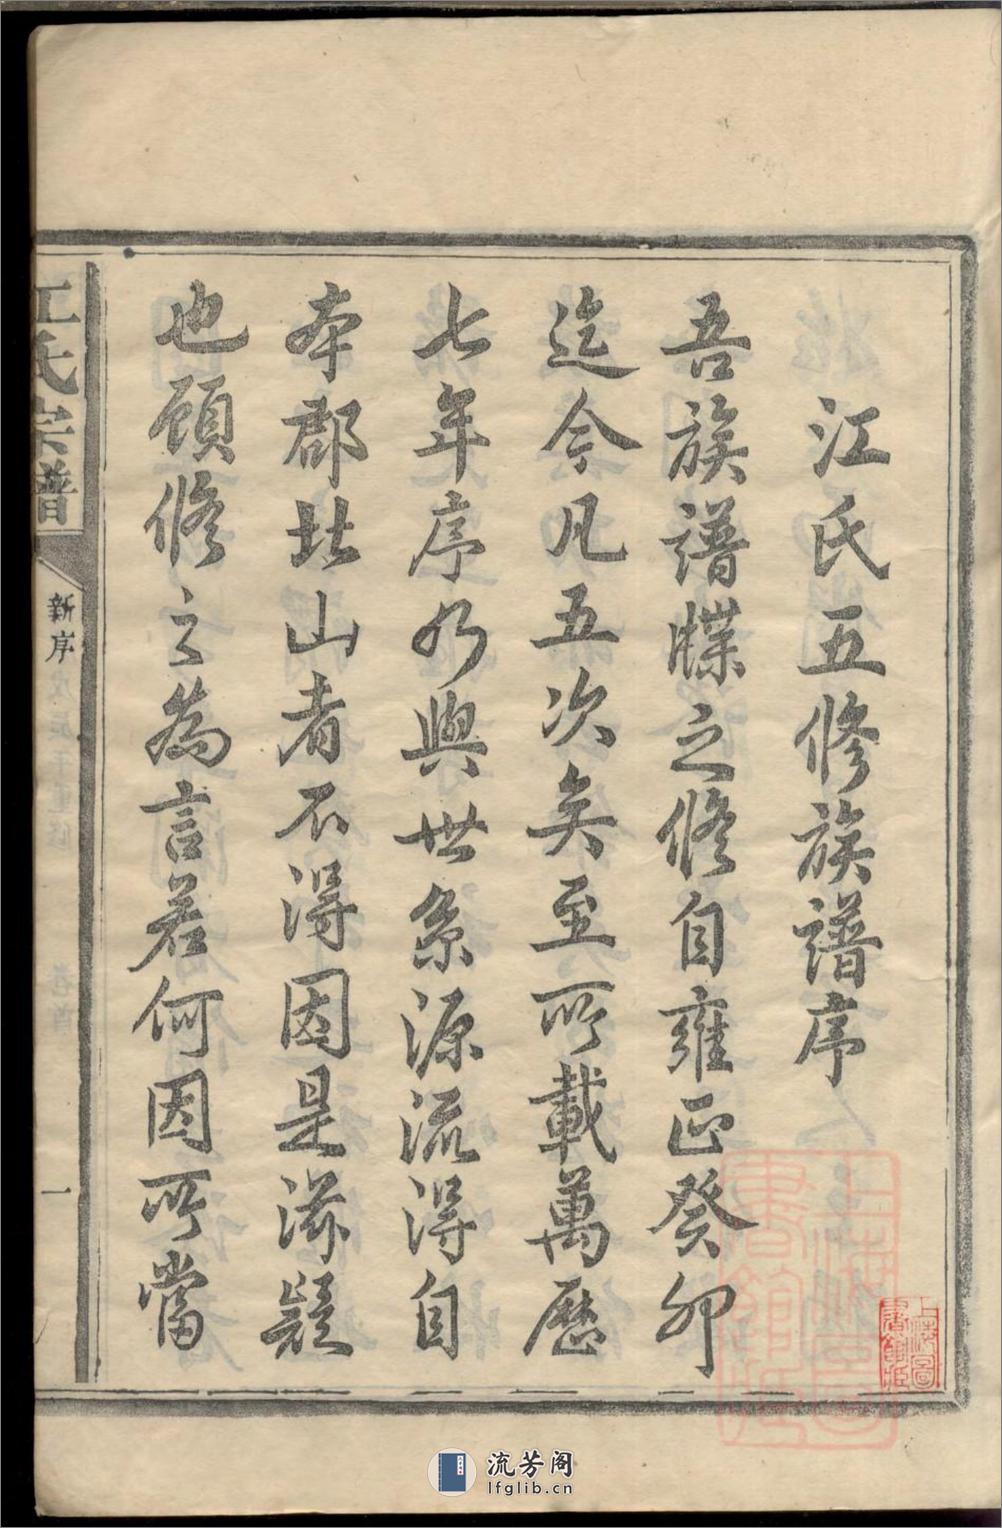 江氏五修族譜序
吾族譜牒之修自雍正癸卯
迄今凡五次矣至所載萬歷
七年序乃與世系源流得自
本郡北山者不得因是滋疑
也顧修之為言若何因所當
江氏宗譜
新序
一
上海圖書館藏
流芳阁
lfglib.cn